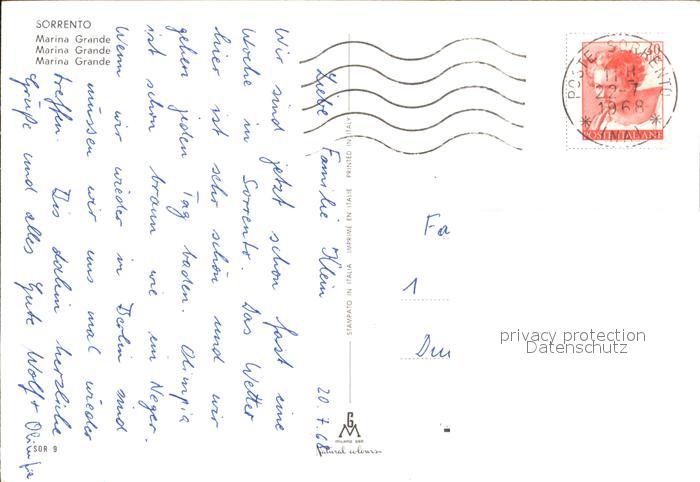 SORRENTO
Marina Grande
Marina Grande
Marina Grande
Liebe Familie Klein 20.7.68
Wir sind jetzt schon fast eine
Woche in Sorrento. Das Wetter
hier ist sehr schön und wir
gehen jeden Tag baden. Olimpia
ist schon braun wie ein Neger.
Wenn wir wieder in Berlin sind
müssen wir uns mal wieder
treffen. Bis dahin herzliche
Grüße und alles Gute Wolf + Olimpia
SOR 9
STAMPATO IN ITALIA IMPRIMÉ EN ITALIE PRINTED IN ITALY
GM
MILANO
Natural colours
POSTE SORRENTO
11-H
22-7
1968
* (NA) *
POSTE ITALIANE
Fa
1
privacy protection
Datenschutz